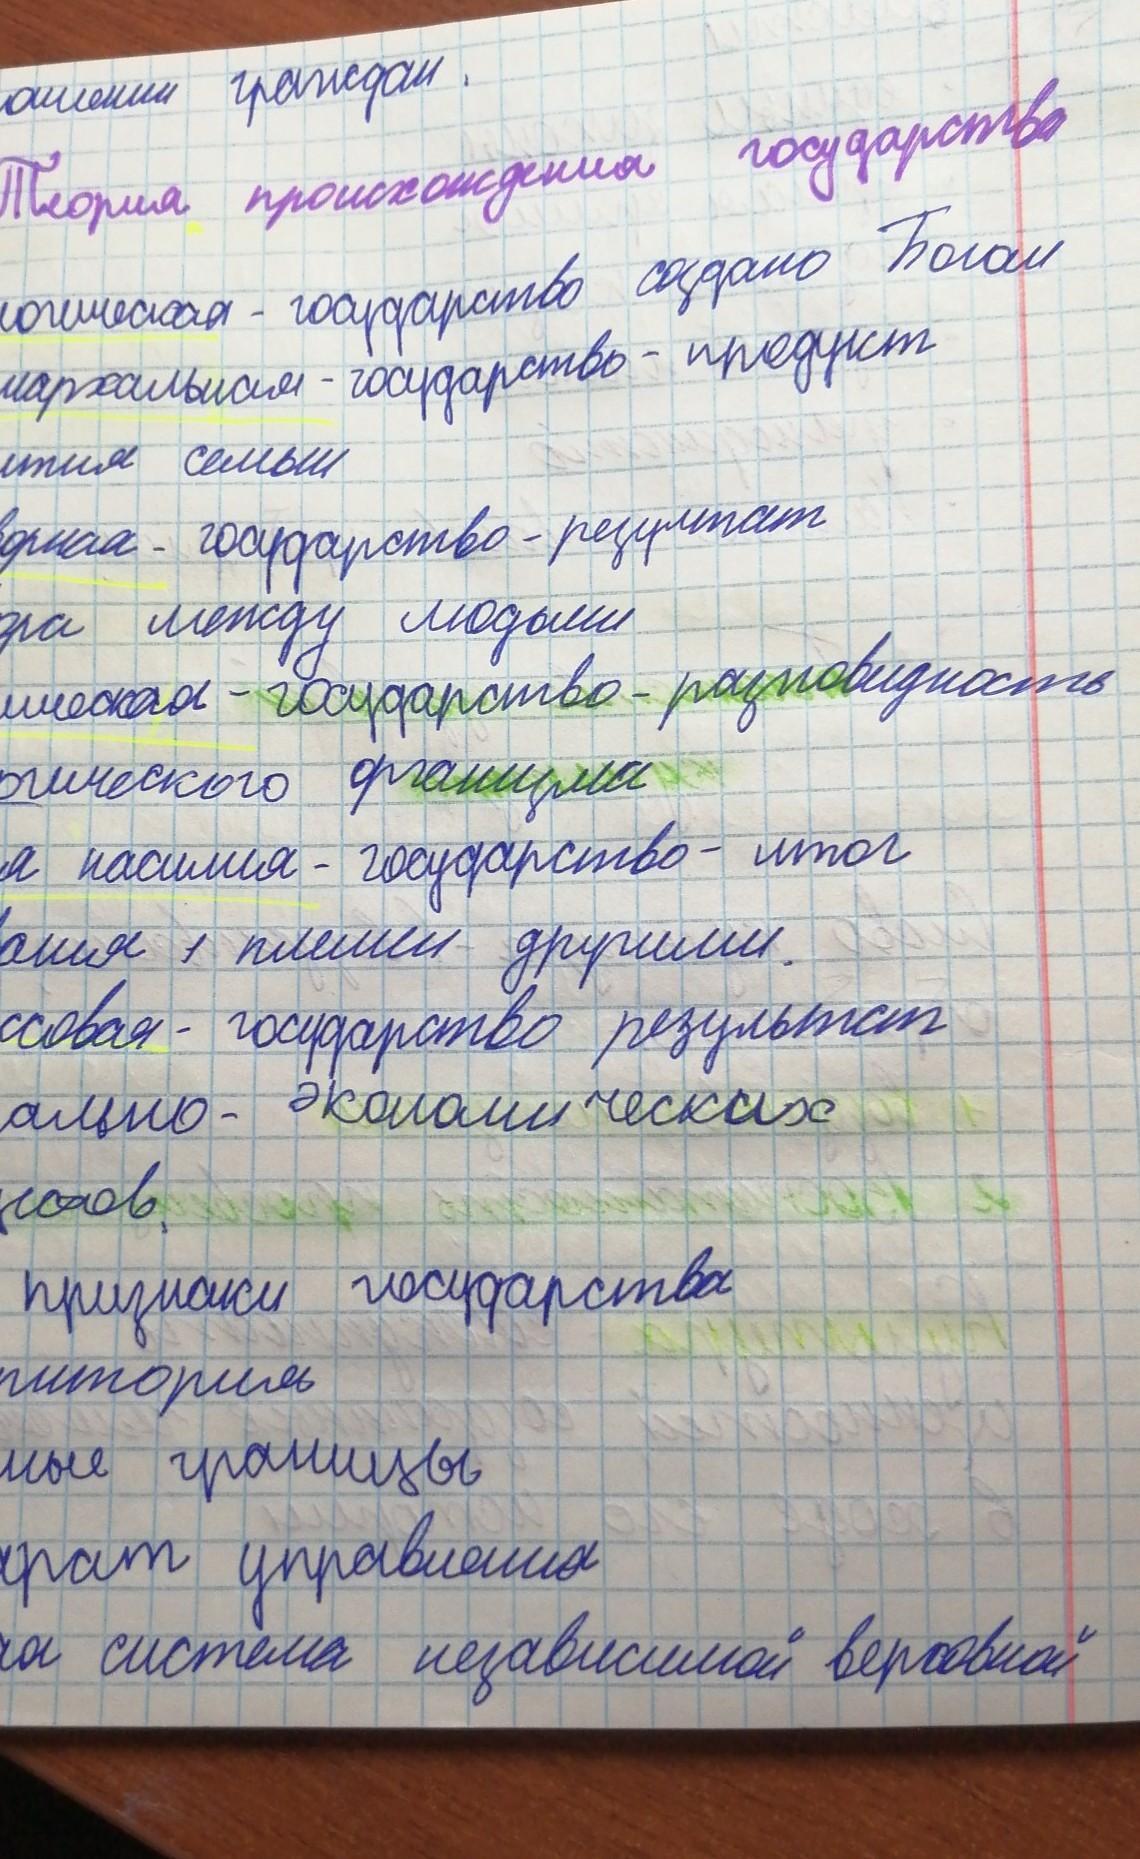 ошении граждан.
Теория происхождения государства
логическая - государство создано Богом
иархальная - государство - продукт
ития семьи
ворная - государство - результат
ора между людьми
ническая - государство - разновидность
огического организма
я насилия - государство - итог
вания 1 племени другими.
ссовая - государство результат
ально - экономических
признаки государства
риториия
ные границы
арат управления
ая система независимой верховной